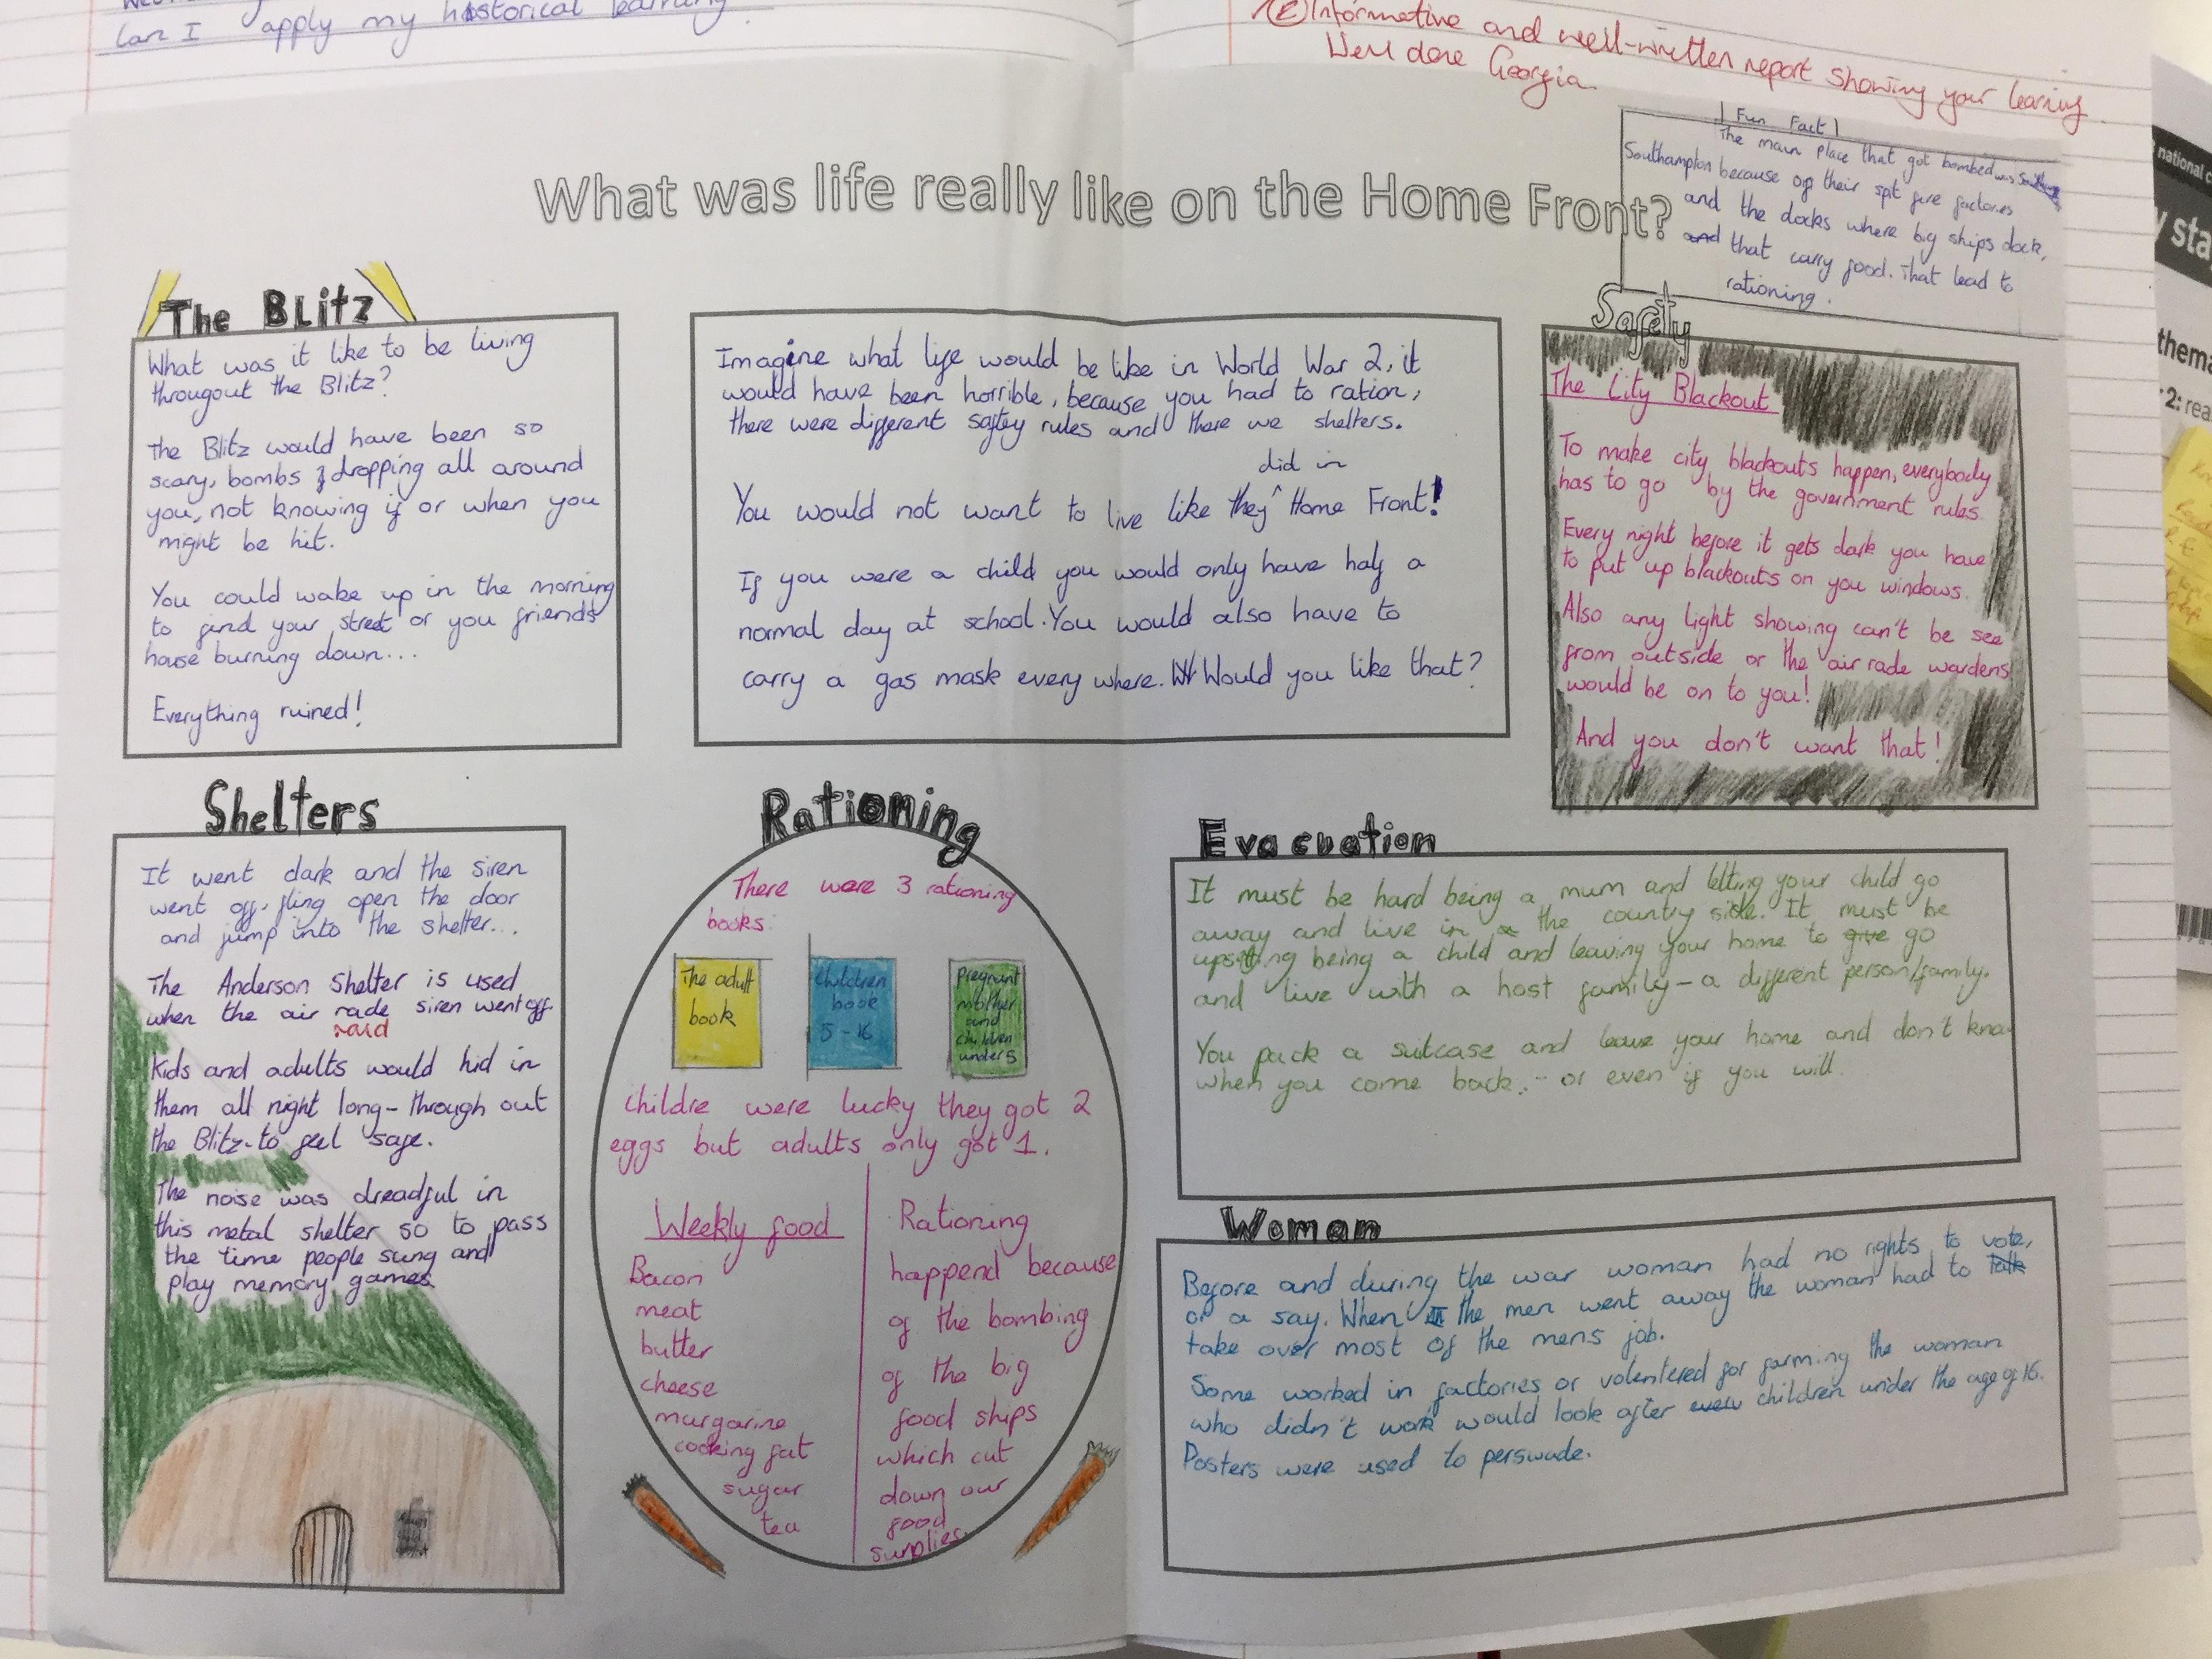 Can I apply my historical learning
Informative and well-written report showing your learning.
Well done Georgia
What was life really like on the Home Front?
Fun Fact
The main place that got bombed was
Southampton because of their spit fire factories
and the docks where big ships dock,
and that carry food. That lead to
rationing.
The Blitz
What was it like to be living
througout the Blitz?
The Blitz would have been so
scary, bombs dropping all around
you, not knowing if or when you
might be hit.
You could wake up in the morning
to find your street or you friends
house burning down...
Everything ruined!
Imagine what life would be like in World War 2, it
would have been horrible, because you had to ration,
there were different saftey rules and there we shelters.
did in
You would not want to live like they ^ Home Front!
If you were a child you would only have half a
normal day at school. You would also have to
carry a gas mask every where. Would you like that?
Safety
The City Blackout
To make city blackouts happen, everybody
has to go by the government rules.
Every night before it gets dark you have
to put up blackouts on you windows.
Also any light showing can't be see
from outside or the air rade wardens
would be on to you!
And you don't want that!
Shelters
It went dark and the siren
went off, fling open the door
and jump into the shelter...
The Anderson Shelter is used
when the air rade siren went off.
raid
Kids and adults would hid in
them all night long - through out
the Blitz - to feel safe.
The noise was dreadful in
this metal shelter so to pass
the time people sung and
play memory games
Rationing
There were 3 rationing
books:
The adult
book
Children
book
5-16
pregnant
mother
and
children
under 5
childre were lucky they got 2
eggs but adults only got 1.
Weekly food
Bacon
meat
butter
cheese
margarine
cooking fat
sugar
tea
Rationing
happend because
of the bombing
of the big
food ships
which cut
down our
food
surplies
Evacuation
It must be hard being a mum and letting your child go
away and live in the country side. It must be
upsetting being a child and leaving your home to give go
and live with a host family - a different person/family.
You pack a suitcase and leave your home and don't know
when you come back. - or even if you will.
Woman
Before and during the war woman had no rights to vote,
or a say. When the men went away the woman had to talk
take over most of the mens job.
Some worked in factories or volentered for farming the woman
who didn't work would look after every children under the age of 16.
Posters were used to perswade.
national
sta
thema
2: rea